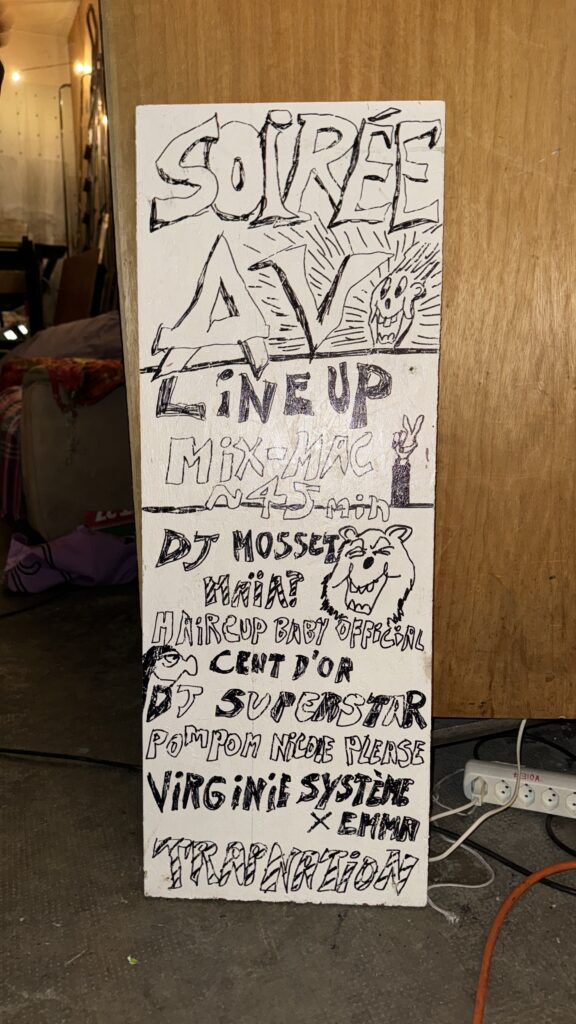 SOIRÉE
AV
LINE UP
MIX-MAC
~45 min
DJ MOSSET
MAÏAT
HAIRCUP BABY OFFICIAL
CENT D'OR
DJ SUPERSTAR
POMPOM NICOLE PLEASE
ViRGiNiE SYSTÈME
× EMMA
TRAPNATION